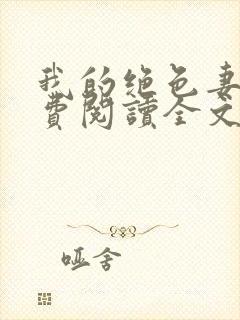 我的绝色妻
费阅读全文
哑舍